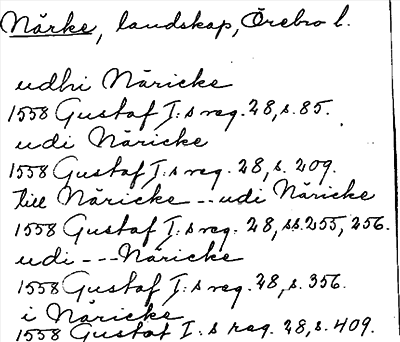 Närke, landskap, Örebro l.
udhi Näricke
1558 Gustaf I:s reg. 28, s. 85.
udi Näricke
1558 Gustaf I:s reg. 28, s. 209.
till Näricke -- udi Näricke
1558 Gustaf I:s reg. 28, ss. 255, 256.
udi --- Näricke
1558 Gustaf I:s reg. 28, s. 356.
i Näricke
1558 Gustaf I:s reg. 28, s. 409.